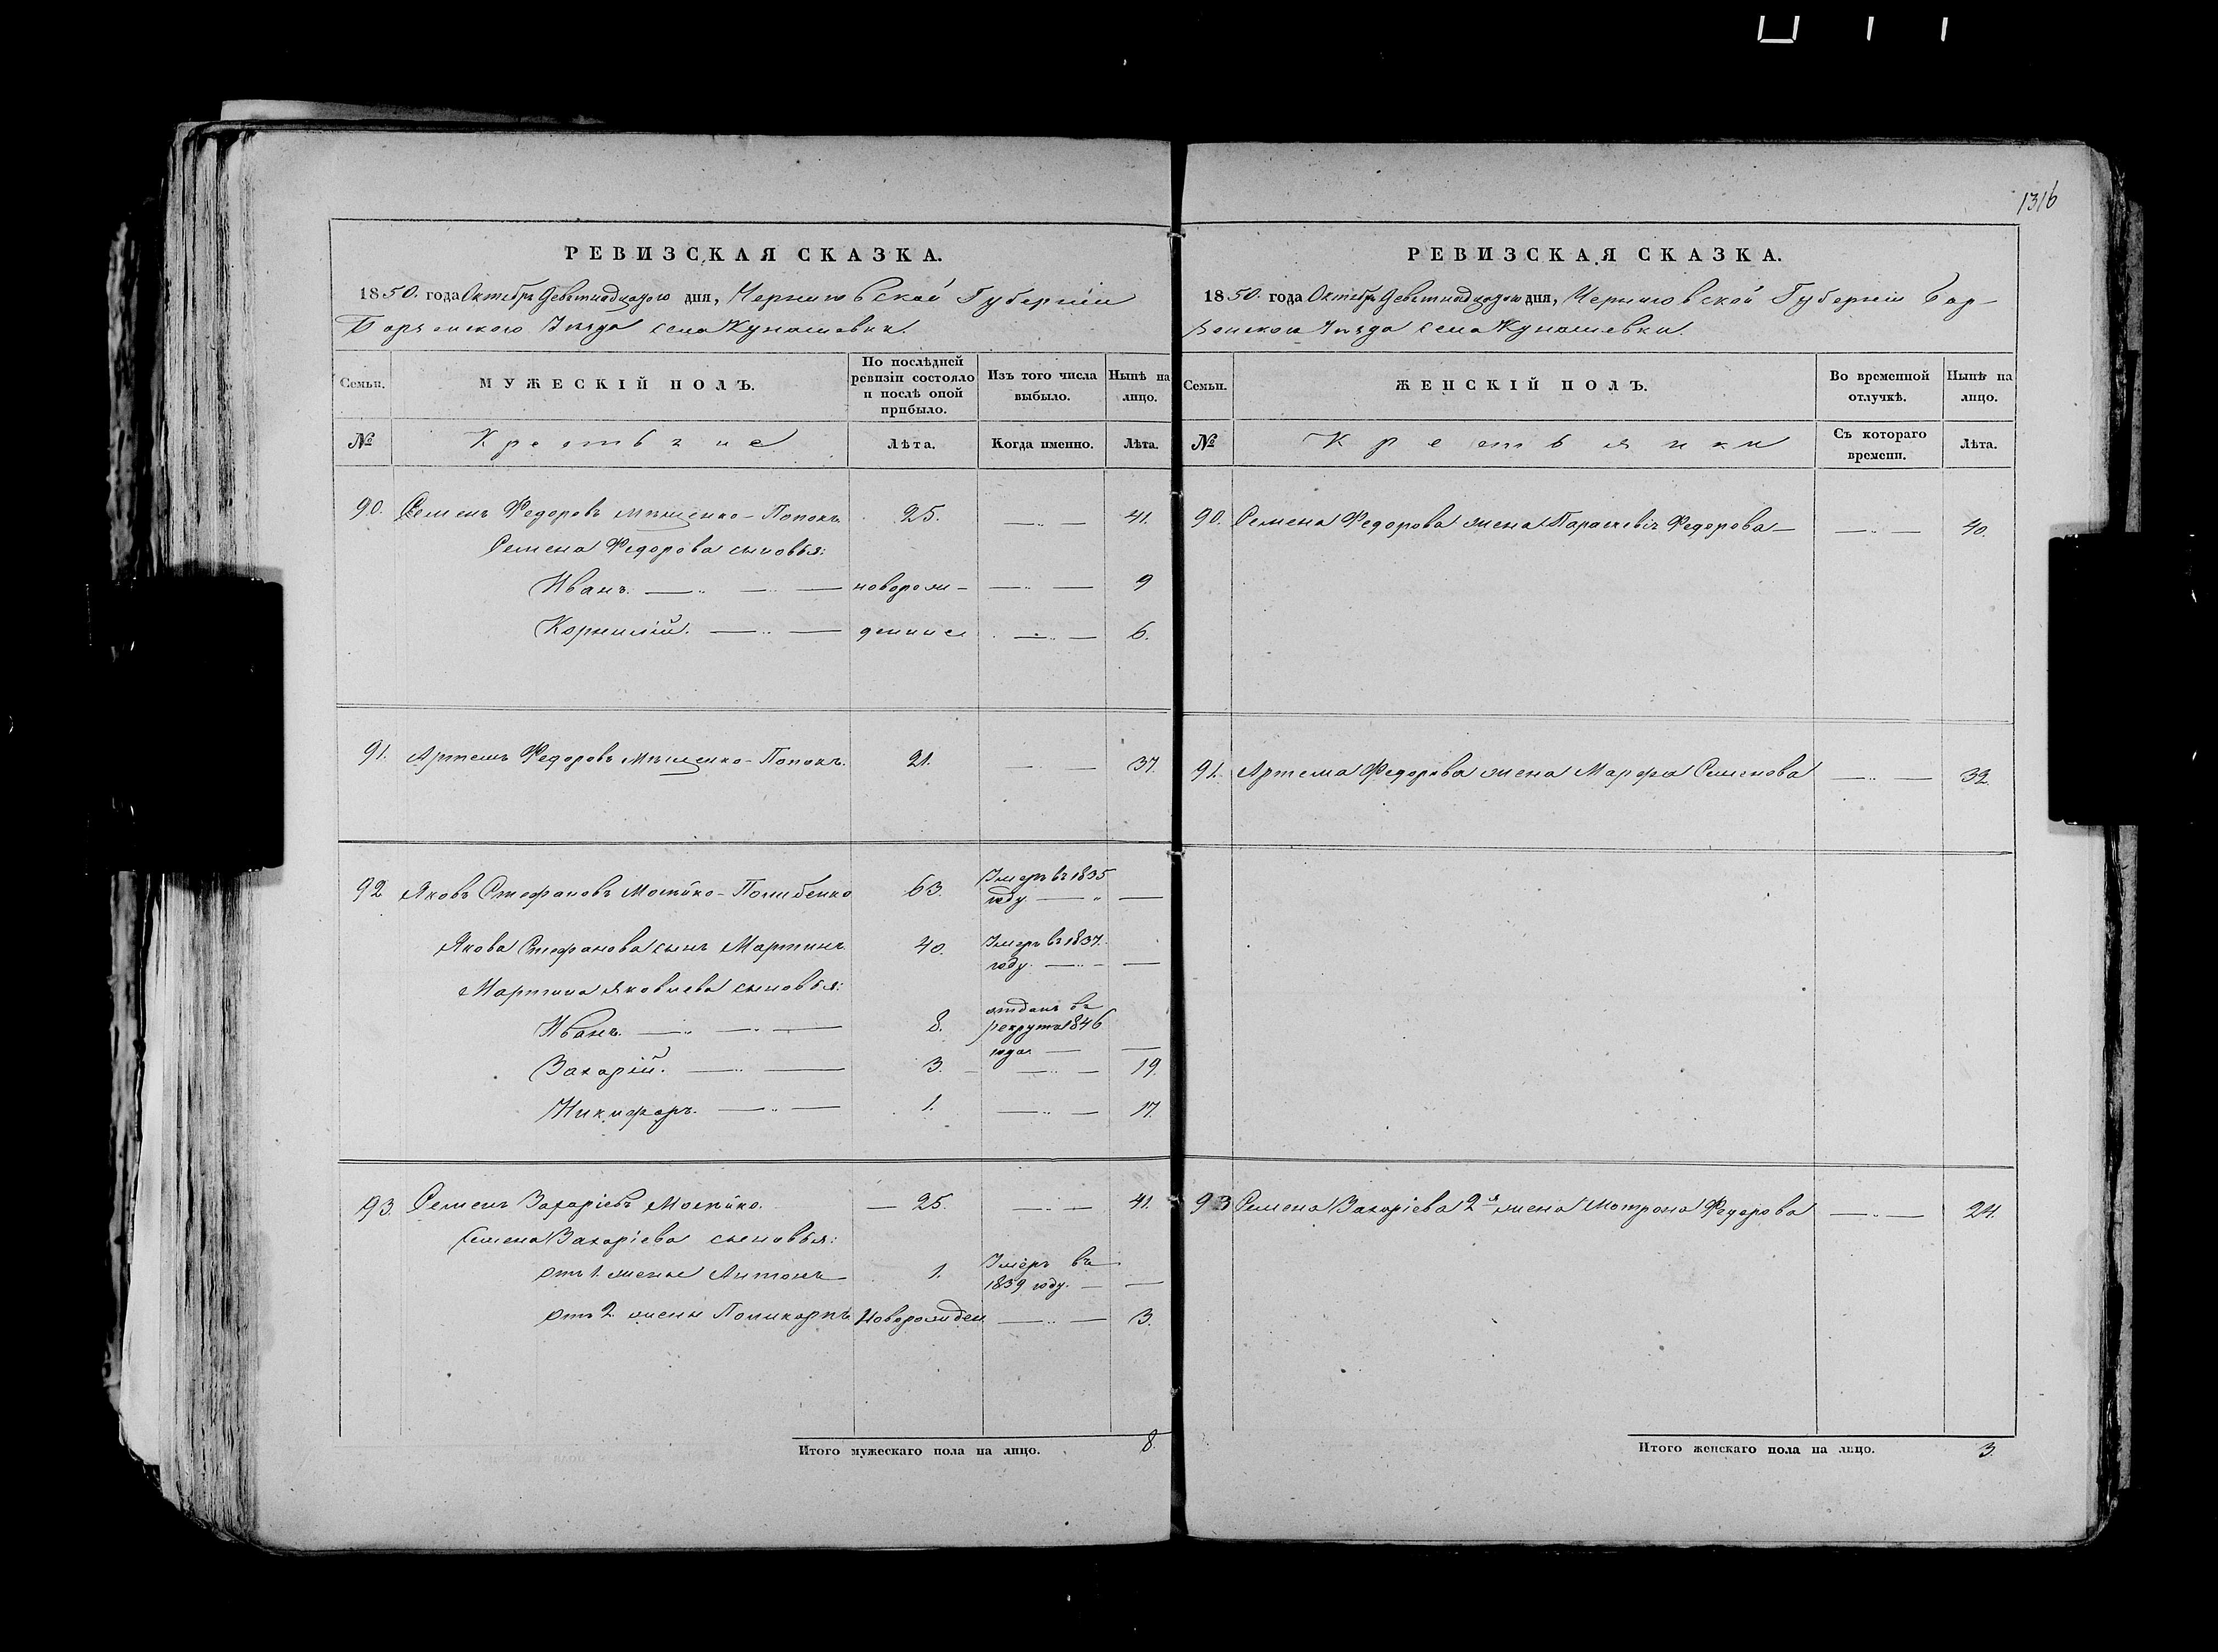 1316
РЕВИЗСКАЯ СКАЗКА.
1850. года Октября Девятнадцатого дня, Черниговской Губерніи
Борзенского Уезда села Кунашевки.
Семьи.
МУЖЕСКІЙ ПОЛЪ.
По послѣдней ревизіи состояло и послѣ оной прибыло.
Изъ того числа выбыло.
Нынѣ на лицо.
№
Крестьяне
Лѣта.
Когда именно.
Лѣта.
90. Семенъ Федоровъ Мищенко-Попокъ. 25. — „ — 41.
Семена Федорова сыновья:
Иванъ. — „ — „ — новорож- — „ — 9
Корнилій. — „ — денные — „ — 6.
91. Артемъ Федоровъ Мищенко-Попокъ. 21. — „ — 37.
92 Яковъ Стефановъ 63. Умеръ въ 1835
году — „ —
Якова Стефанова сынъ Мартинъ 40. Умеръ въ 1837.
году. — „ — —
Мартина Яковлева сыновья:
Иванъ. — „ — „ — 8. отданъ въ
рекруты 1846
года — —
Захарій. — „ — 3. — „ — 19.
Никифоръ. — „ — 1. — „ — 17.
93. Семенъ Захаріевъ — 25. — „ — 41.
Семена Захаріева сыновья:
отъ 1. жены Антонъ 1. Умеръ въ
1839 году. — —
отъ 2 жены Поликарпъ Новорожден — „ — 3.
Итого мужескаго пола на лицо. 8.
РЕВИЗСКАЯ СКАЗКА.
1850. года Октября Девятнадцатого дня, Черниговской Губерніи Бор-
зенского Уезда села Кунашевки.
Семьи.
ЖЕНСКІЙ ПОЛЪ.
Во временной отлучкѣ.
Нынѣ на лицо.
№
Крестьянки
Съ котораго времени.
Лѣта.
90. Семена Федорова жена Параскевія Федорова — — „ — 40.
91. Артема Федорова жена Марфа Семенова — „ — 32.
93 Семена Захаріева 2я жена Мотрона Федорова — „ — 24.
Итого женскаго пола на лицо. 3.